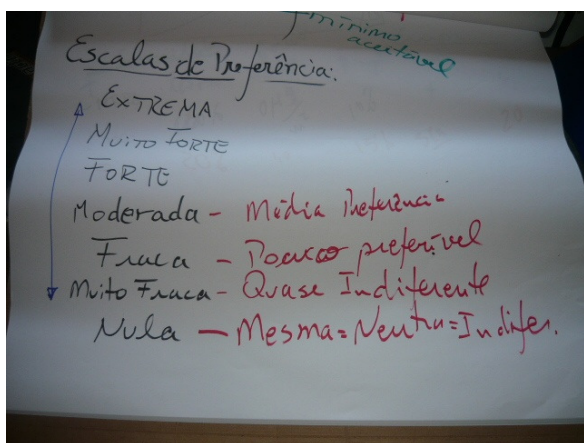 mínimo
aceitável
Escalas de Preferência:
EXTREMA
Muito FORTE
FORTE
Moderada - Média Preferência
Fraca - Pouco preferível
Muito Fraca - Quase Indiferente
Nula - Mesma = Neutra = Indifer.